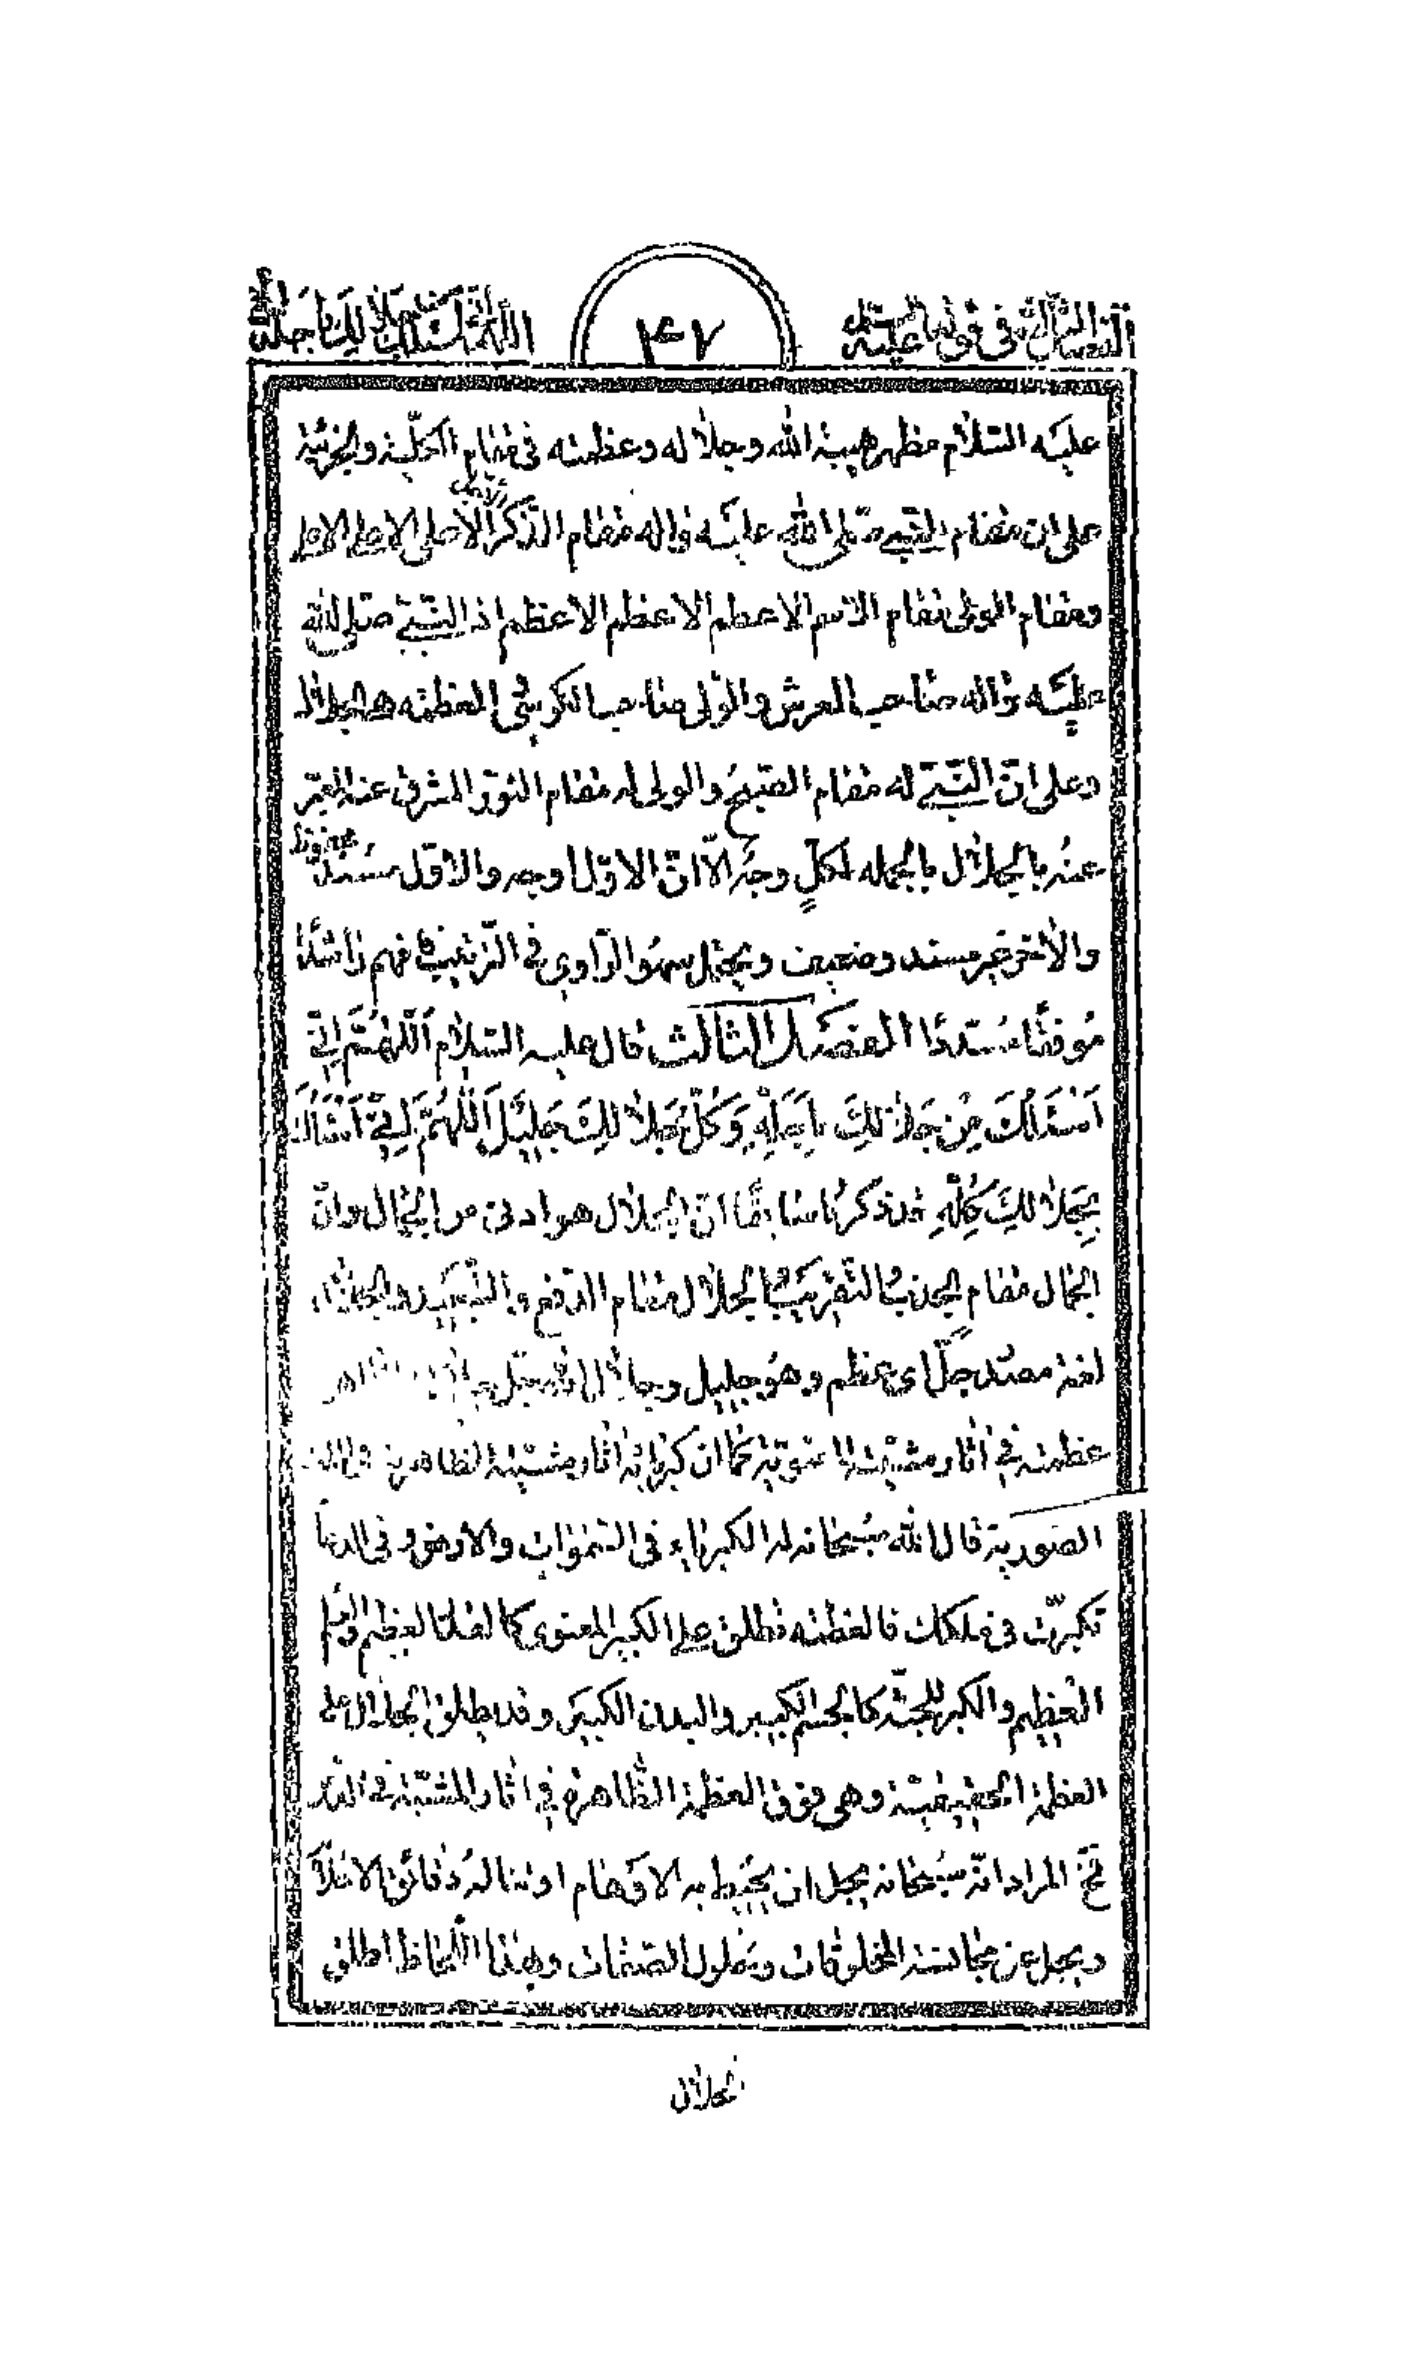 الفصل الثالث فى قوله عليه السلام
٤٧
اللهم انى اسئلك من جلالك باجله
عليه السلام مظهر هيبة الله وجلاله وعظمته فى مقام الكلية والجزئية
على ان مقام النبى صلى الله عليه واله مقام الذكر الاعلى الاعلى الاعلى
ومقام الولى مقام الاسم الاعظم الاعظم الاعظم اذ النبى صلى الله
عليه واله صاحب العرش والولى صاحب الكرسى العظمة هى الجلال
وعلى ان النبى له مقام الصبح والولى له مقام النور المشرق عنه المعبر
عنه بالجلال بالجملة لكل وجه الا ان الاول اوجه والاول سنده محفوظ
والاخر غير مسند وضعيف ويحتمل سهو الراوى فى الترتيب فافهم راشدا
موفقا مسددا الفصل الثالث قال عليه السلام اَللّهُمَّ اِنّى
اَسْئَلُكَ مِنْ جَلالِكَ بِاَجَلِّهِ وَكُلُّ جَلالِكَ جَليلٌ اَللّهُمَّ اِنّى اَسْئَلُكَ
بِجَلالِكَ كُلِّهِ قد ذكرنا سابقا ان الجلال هو ادنى من الجمال وان
الجمال مقام الجذب والتقريب والجلال مقام الدفع والتبعيد والجلال
لغة مصدر جلّ اى عظم وهو جليل وجلال الله
عظمته فى اثار مشيته المعنوية كما ان كبريائه اثار مشيته الظاهرة
الصورية قال الله سبحانه له الكبرياء فى السموات والارض وفى الدعا
تكبرت فى ملكك فالعظمة تطلق على الكبير المعنوى كالفلتا العظيم
العظيم والكبر للجثة كالجسم الكبير والبدن الكبير وقد يطلق الجلال على
العظمة الحقيقية وهى فوق العظمة الظاهرة فى اثار المشية
المراد انه سبحانه يجل ان يحيط به الاوهام او تناله دقائق الافلاك
ويجل عن مجانسة المخلوقات ومعلول الصفات وبهذا اللحاظ اطلق
الجلال